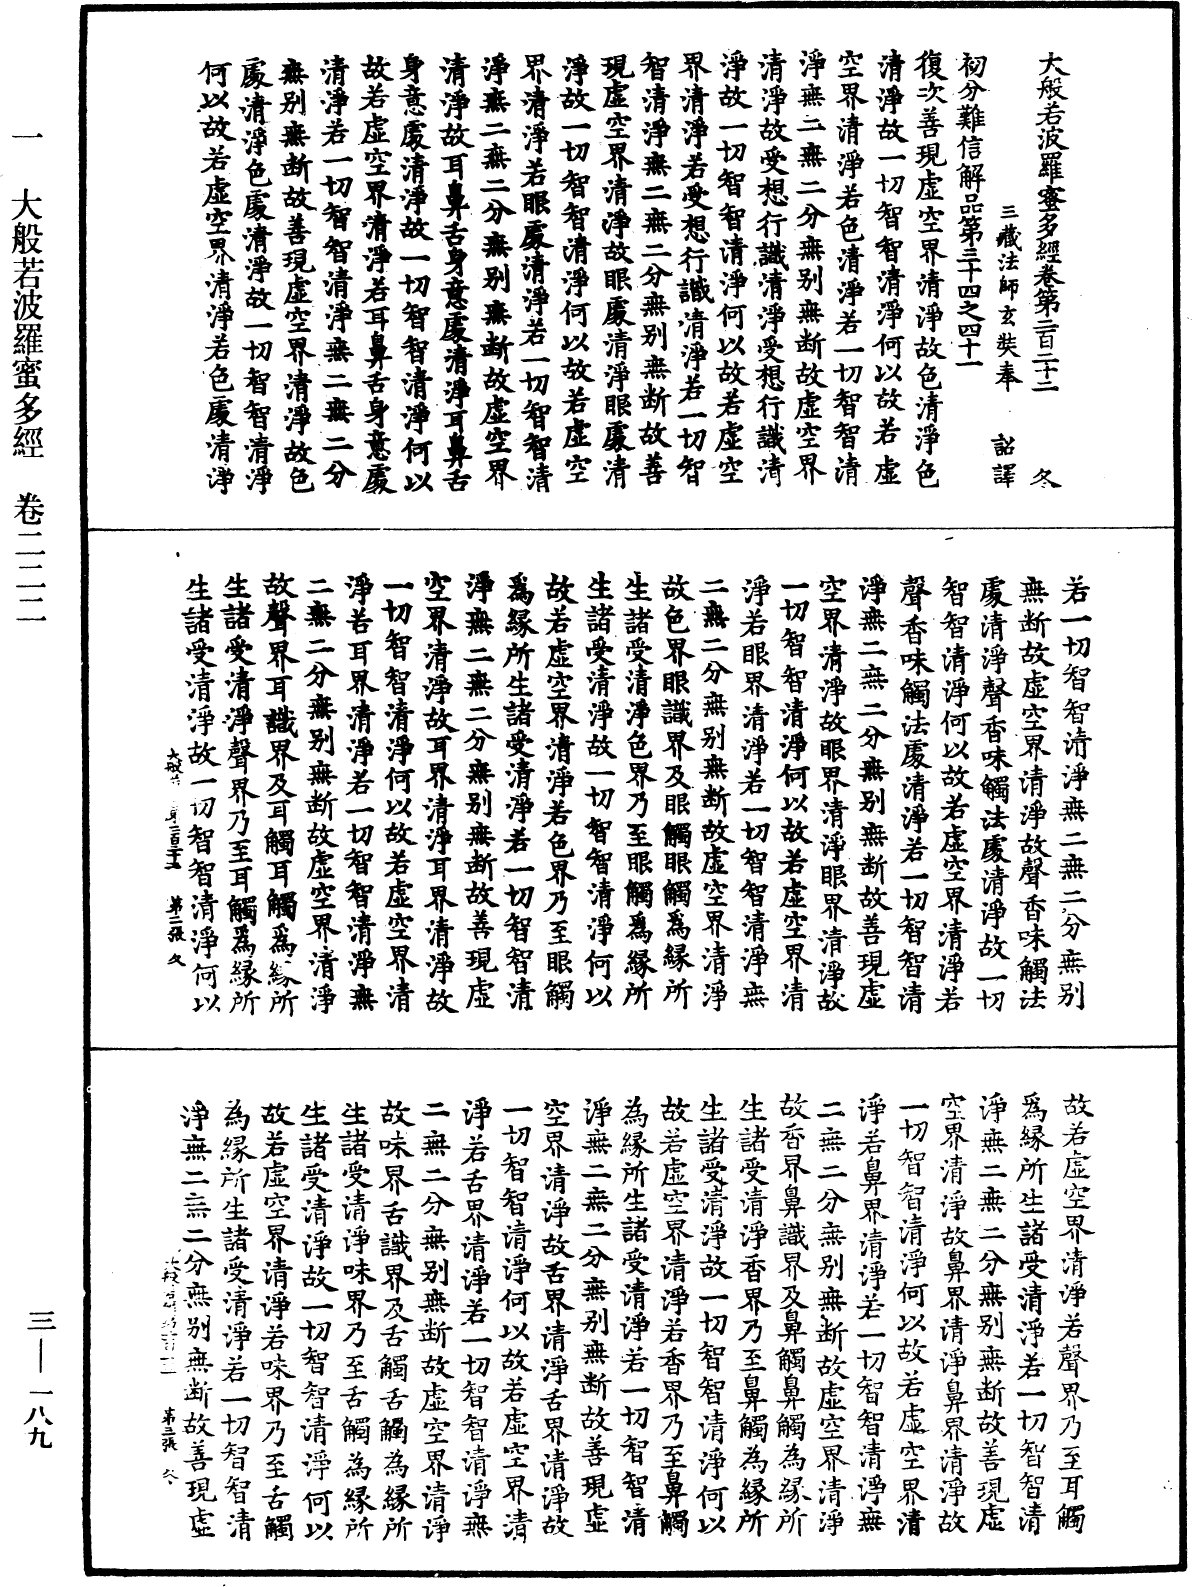 大般若波羅蜜多經卷第二百二十二 冬
三藏法師玄奘奉 詔譯
初分難信解品第三十四之四十一
復次善現虛空界清淨故色清淨色
清淨故一切智智清淨何以故若虛
空界清淨若色清淨若一切智智清
淨無二無二分無別無斷故虛空界
清淨故受想行識清淨受想行識清
淨故一切智智清淨何以故若虛空
界清淨若受想行識清淨若一切智
智清淨無二無二分無別無斷故善
現虛空界清淨故眼處清淨眼處清
淨故一切智智清淨何以故若虛空
界清淨若眼處清淨若一切智智清
淨無二無二分無別無斷故虛空界
清淨故耳鼻舌身意處清淨耳鼻舌
身意處清淨故一切智智清淨何以
故若虛空界清淨若耳鼻舌身意處
清淨若一切智智清淨無二無二分
無別無斷故善現虛空界清淨故色
處清淨色處清淨故一切智智清淨
何以故若虛空界清淨若色處清淨
若一切智智清淨無二無二分無別
無斷故虛空界清淨故聲香味觸法
處清淨聲香味觸法處清淨故一切
智智清淨何以故若虛空界清淨若
聲香味觸法處清淨若一切智智清
淨無二無二分無別無斷故善現虛
空界清淨故眼界清淨眼界清淨故
一切智智清淨何以故若虛空界清
淨若眼界清淨若一切智智清淨無
二無二分無別無斷故虛空界清淨
故色界眼識界及眼觸眼觸為緣所
生諸受清淨色界乃至眼觸為緣所
生諸受清淨故一切智智清淨何以
故若虛空界清淨若色界乃至眼觸
為緣所生諸受清淨若一切智智清
淨無二無二分無別無斷故善現虛
空界清淨故耳界清淨耳界清淨故
一切智智清淨何以故若虛空界清
淨若耳界清淨若一切智智清淨無
二無二分無別無斷故虛空界清淨
故聲界耳識界及耳觸耳觸為緣所
生諸受清淨聲界乃至耳觸為緣所
生諸受清淨故一切智智清淨何以
第二張 冬
故若虛空界清淨若聲界乃至耳觸
為緣所生諸受清淨若一切智智清
淨無二無二分無別無斷故善現虛
空界清淨故鼻界清淨鼻界清淨故
一切智智清淨何以故若虛空界清
淨若鼻界清淨若一切智智清淨無
二無二分無別無斷故虛空界清淨
故香界鼻識界及鼻觸鼻觸為緣所
生諸受清淨香界乃至鼻觸為緣所
生諸受清淨故一切智智清淨何以
故若虛空界清淨若香界乃至鼻觸
為緣所生諸受清淨若一切智智清
淨無二無二分無別無斷故善現虛
空界清淨故舌界清淨舌界清淨故
一切智智清淨何以故若虛空界清
淨若舌界清淨若一切智智清淨無
二無二分無別無斷故虛空界清淨
故味界舌識界及舌觸舌觸為緣所
生諸受清淨味界乃至舌觸為緣所
生諸受清淨故一切智智清淨何以
故若虛空界清淨若味界乃至舌觸
為緣所生諸受清淨若一切智智清
淨無二無二分無別無斷故善現虛
第三張 冬
一 大般若波羅蜜多經 卷二二二
三—一八九